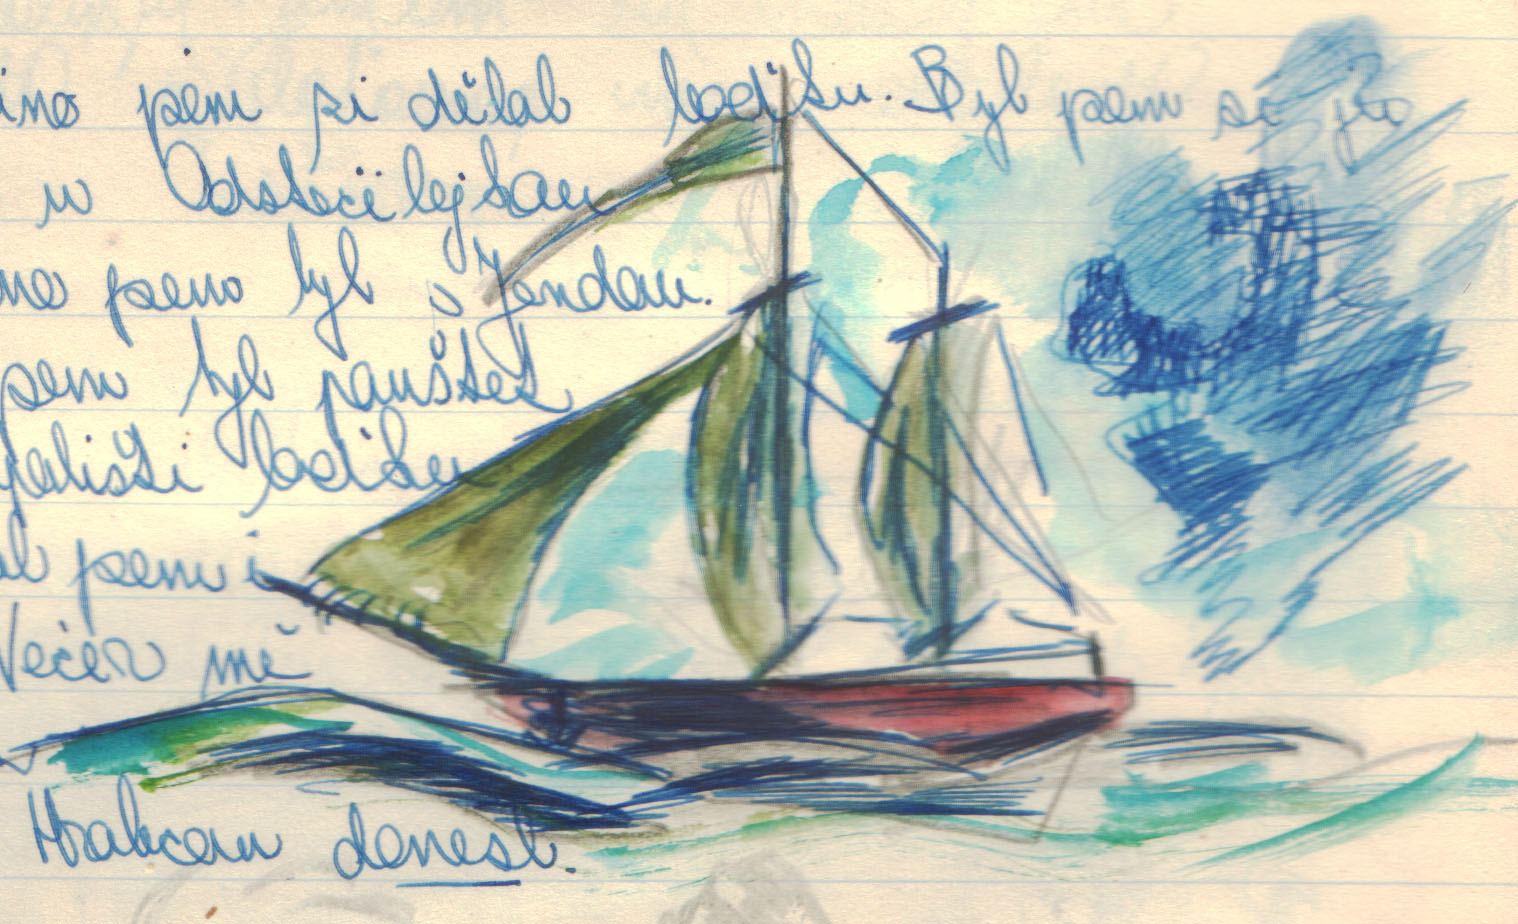 ino jsem si dělal loďku. Byl jsem si
u
no jsem byl s Jendou.
jsem byl pouštět
loďku
l jsem i
Večer mě
donesl.